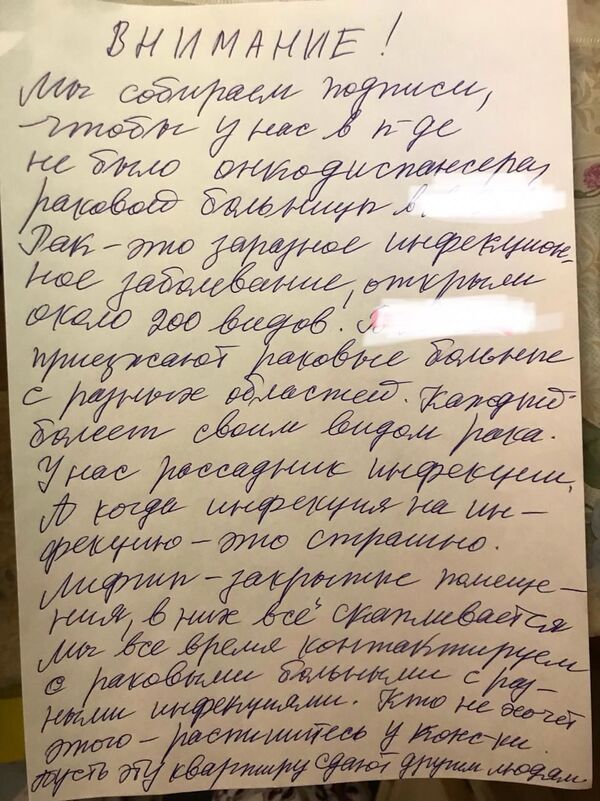 ВНИМАНИЕ!
Мы собираем подписи,
чтобы у нас в п-де
не было онкодиспансера,
раковой больницы в
Рак - это заразное инфекцион-
ное заболевание, открыли
около 200 видов!
приезжают раковые больные
с разных областей. Каждый
болеет своим видом рака.
У нас рассадник инфекции.
А когда инфекция на ин-
фекцию - это страшно.
Лифты - закрытые помеще-
ния, в них всё скапливается
Мы все время контактируем
с раковыми больными с раз-
ными инфекциями. Кто не хочет
этого - распишитесь у конс-ки.
Пусть эту квартиру сдают другим людям.